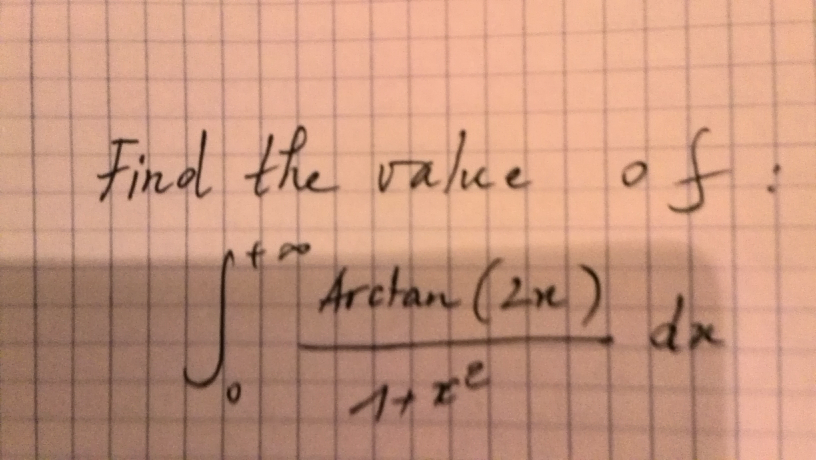 Find the value of :
∫₀^{+∞} Arctan(2x) / (1+x²) dx